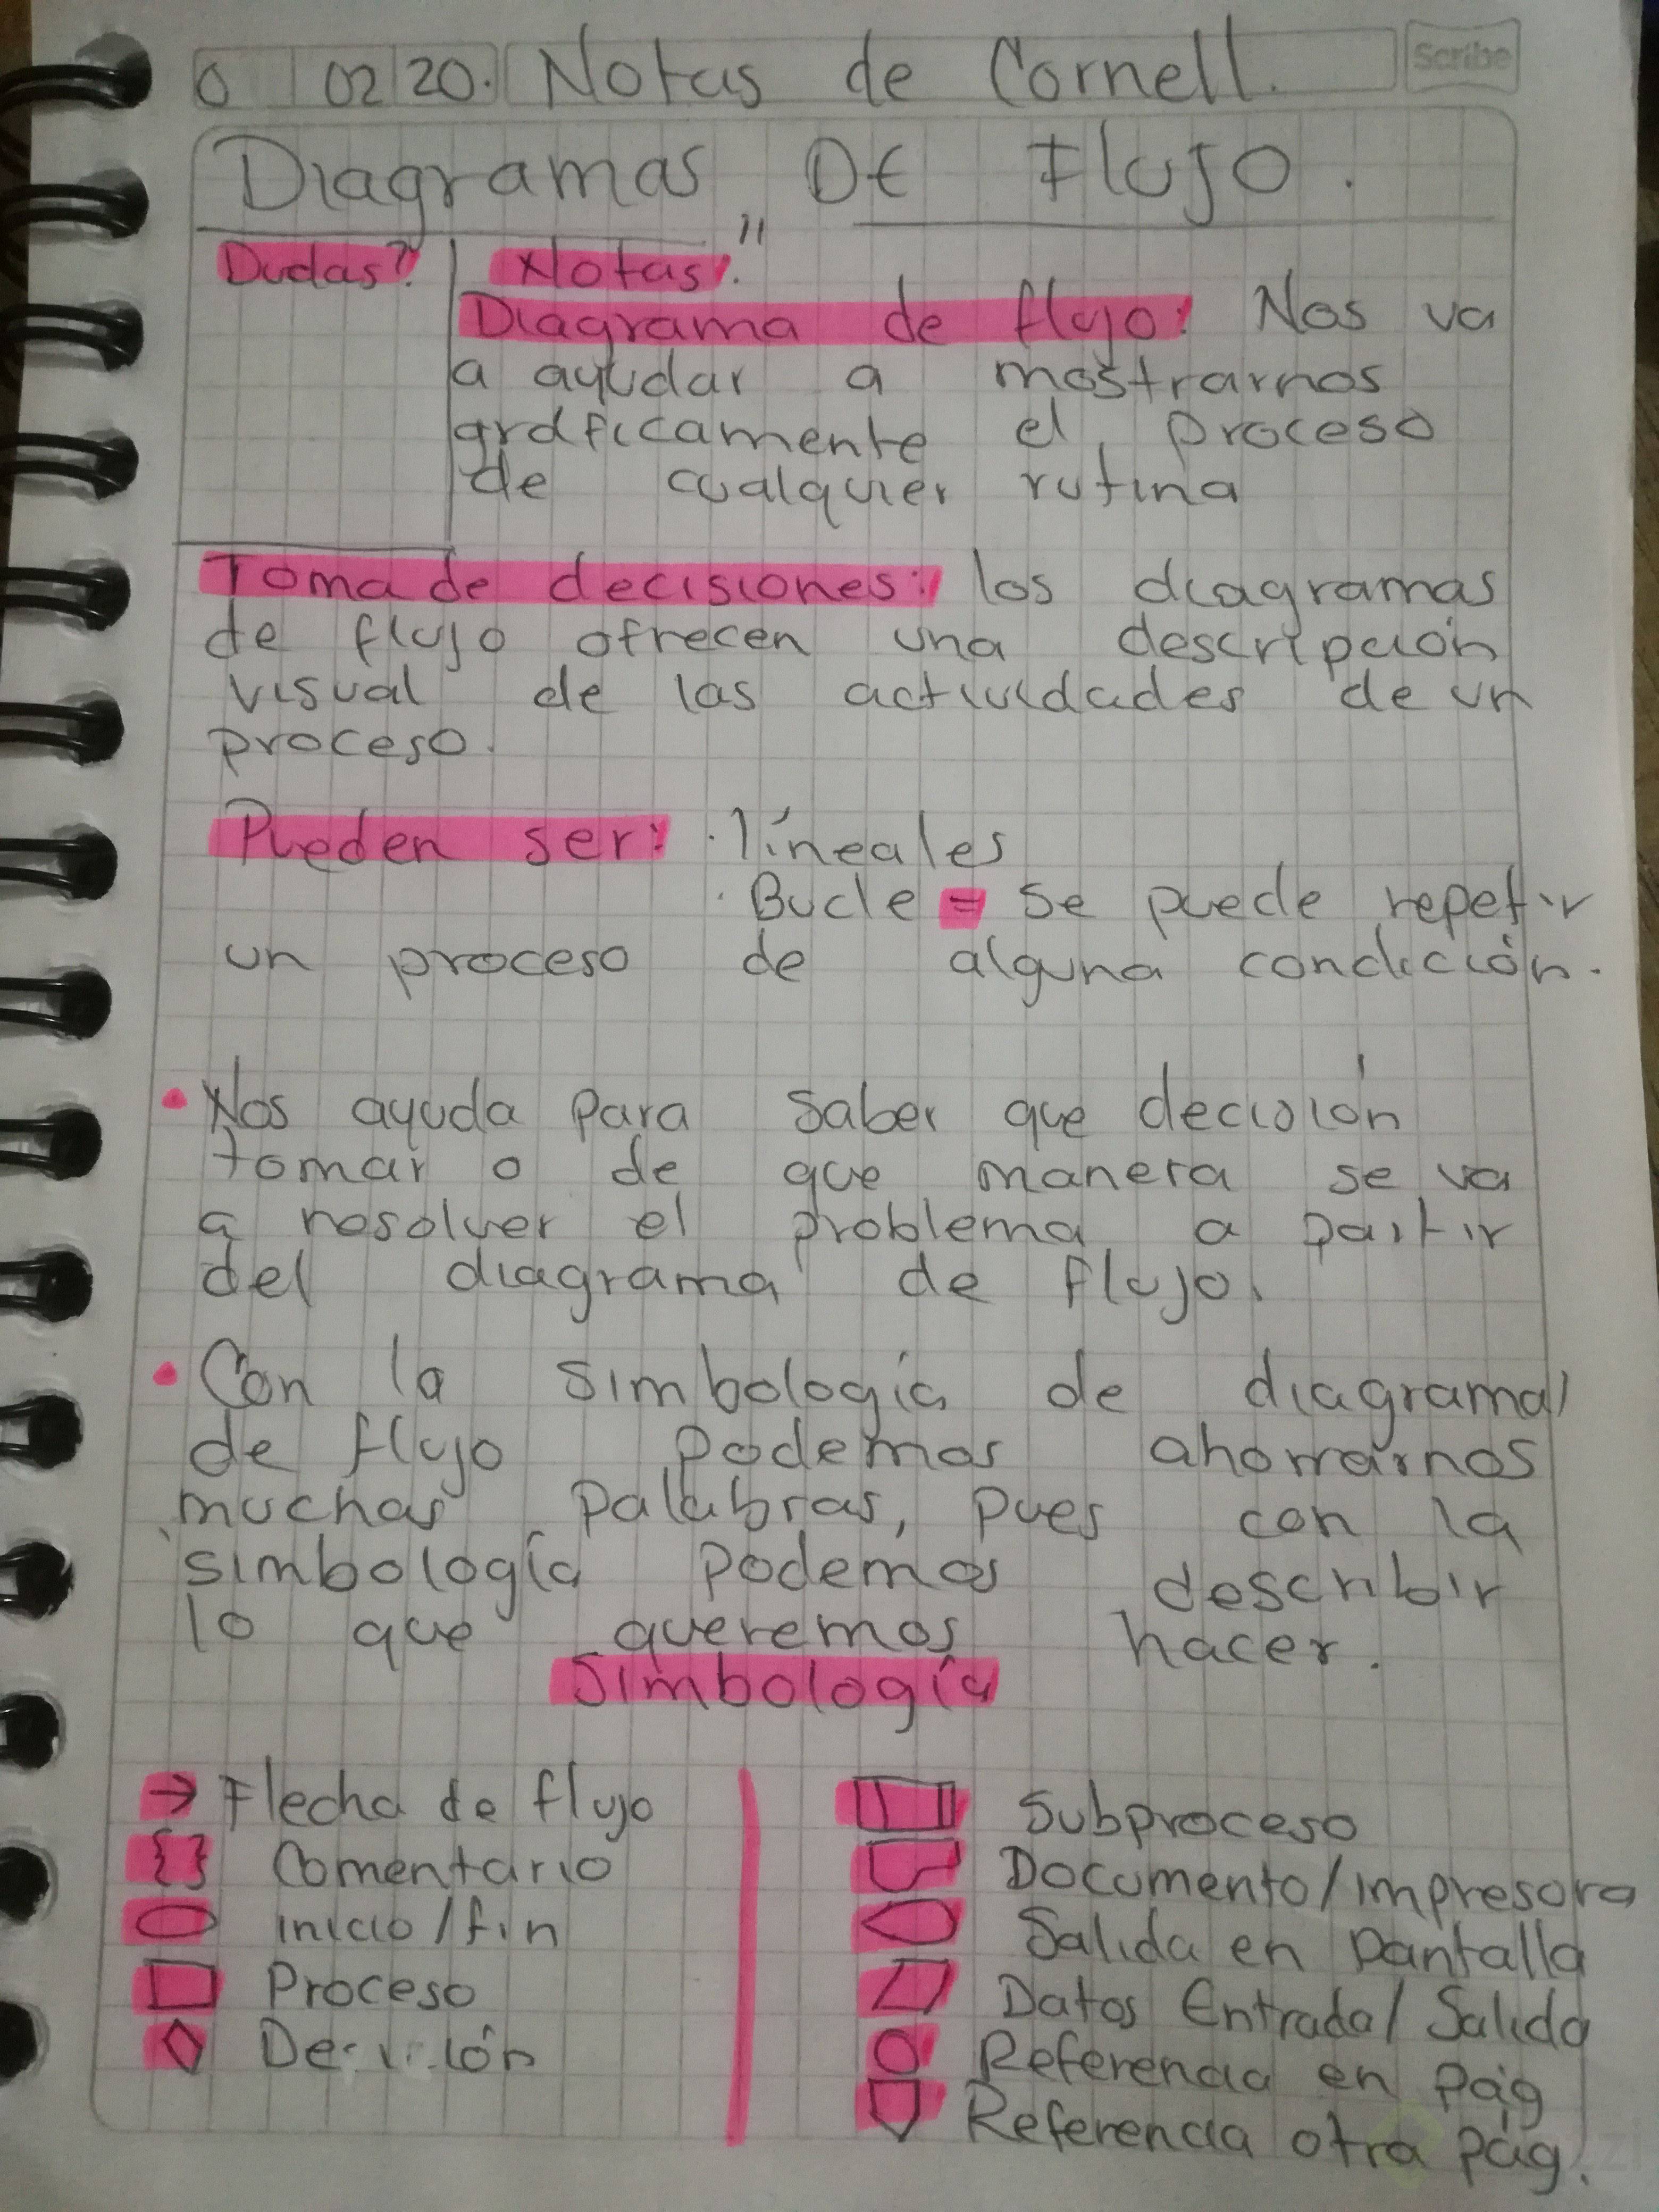 0 02 20. Notas de Cornell. Scribe
Diagramas DE Flujo.
Dudas? Notas:"
Diagrama de flujo: Nos va
a ayudar a mostrarnos
gráficamente el proceso
de cualquier rutina
Toma de decisiones: los diagramas
de flujo ofrecen una descripción
visual de las actividades de un
proceso.
Pueden ser: · líneales
· Bucle = Se puede repetir
un proceso de alguna condición.
• Nos ayuda para saber que decisión
tomar o de que manera se va
a resolver el problema a partir
del diagrama de flujo.
• Con la simbología de diagramas
de flujo podemos ahorrarnos
muchas palabras, pues con la
simbología podemos describir
lo que queremos hacer.
Simbología
→ Flecha de flujo
{ } Comentario
Inicio/fin
Proceso
Decisión
Subproceso
Documento/impresora
Salida en Pantalla
Datos Entrada/Salida
Referencia en Pág
Referencia otra pág.